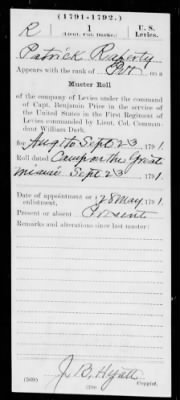 (1791-1792.)
R | 1 | U. S.
(Lieut. Col. Darke.) Levies.
Patrick Raferty
Appears with the rank of Pvt on a
Muster Roll
of the company of Levies under the command
of Capt. Benjamin Price in the service of the
United States in the First Regiment of
Levies commanded by Lieut. Col. Commandant
William Dark,
for Aug to Sept 23, 1791.
Roll dated Camp on the Great
Miami Sept 23, 1791.
Date of appointment or
enlistment, 28 May, 1791.
Present or absent Present
Remarks and alterations since last muster:
J. B. Hyatt
Copyist.